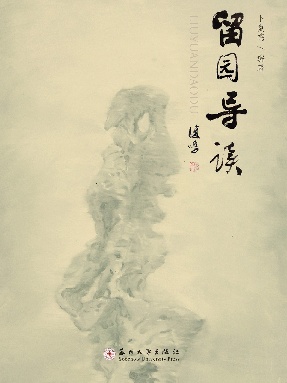 留园导读
LIUYUANDAODU
苏州大学出版社
Soochow University Press